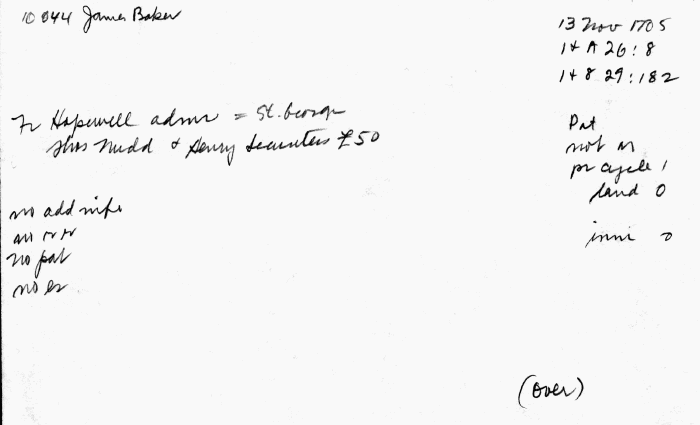 10 044 James Baker
13 Nov 1705
I+A 26:8
I+8 29:182
Fr Hopewell admr = St. George
Thos Mudd + Henry Securities £50
Pat
not on
pr cycle 1
land 0
no add info
an rr
no pat
no es
inni 0
(over)